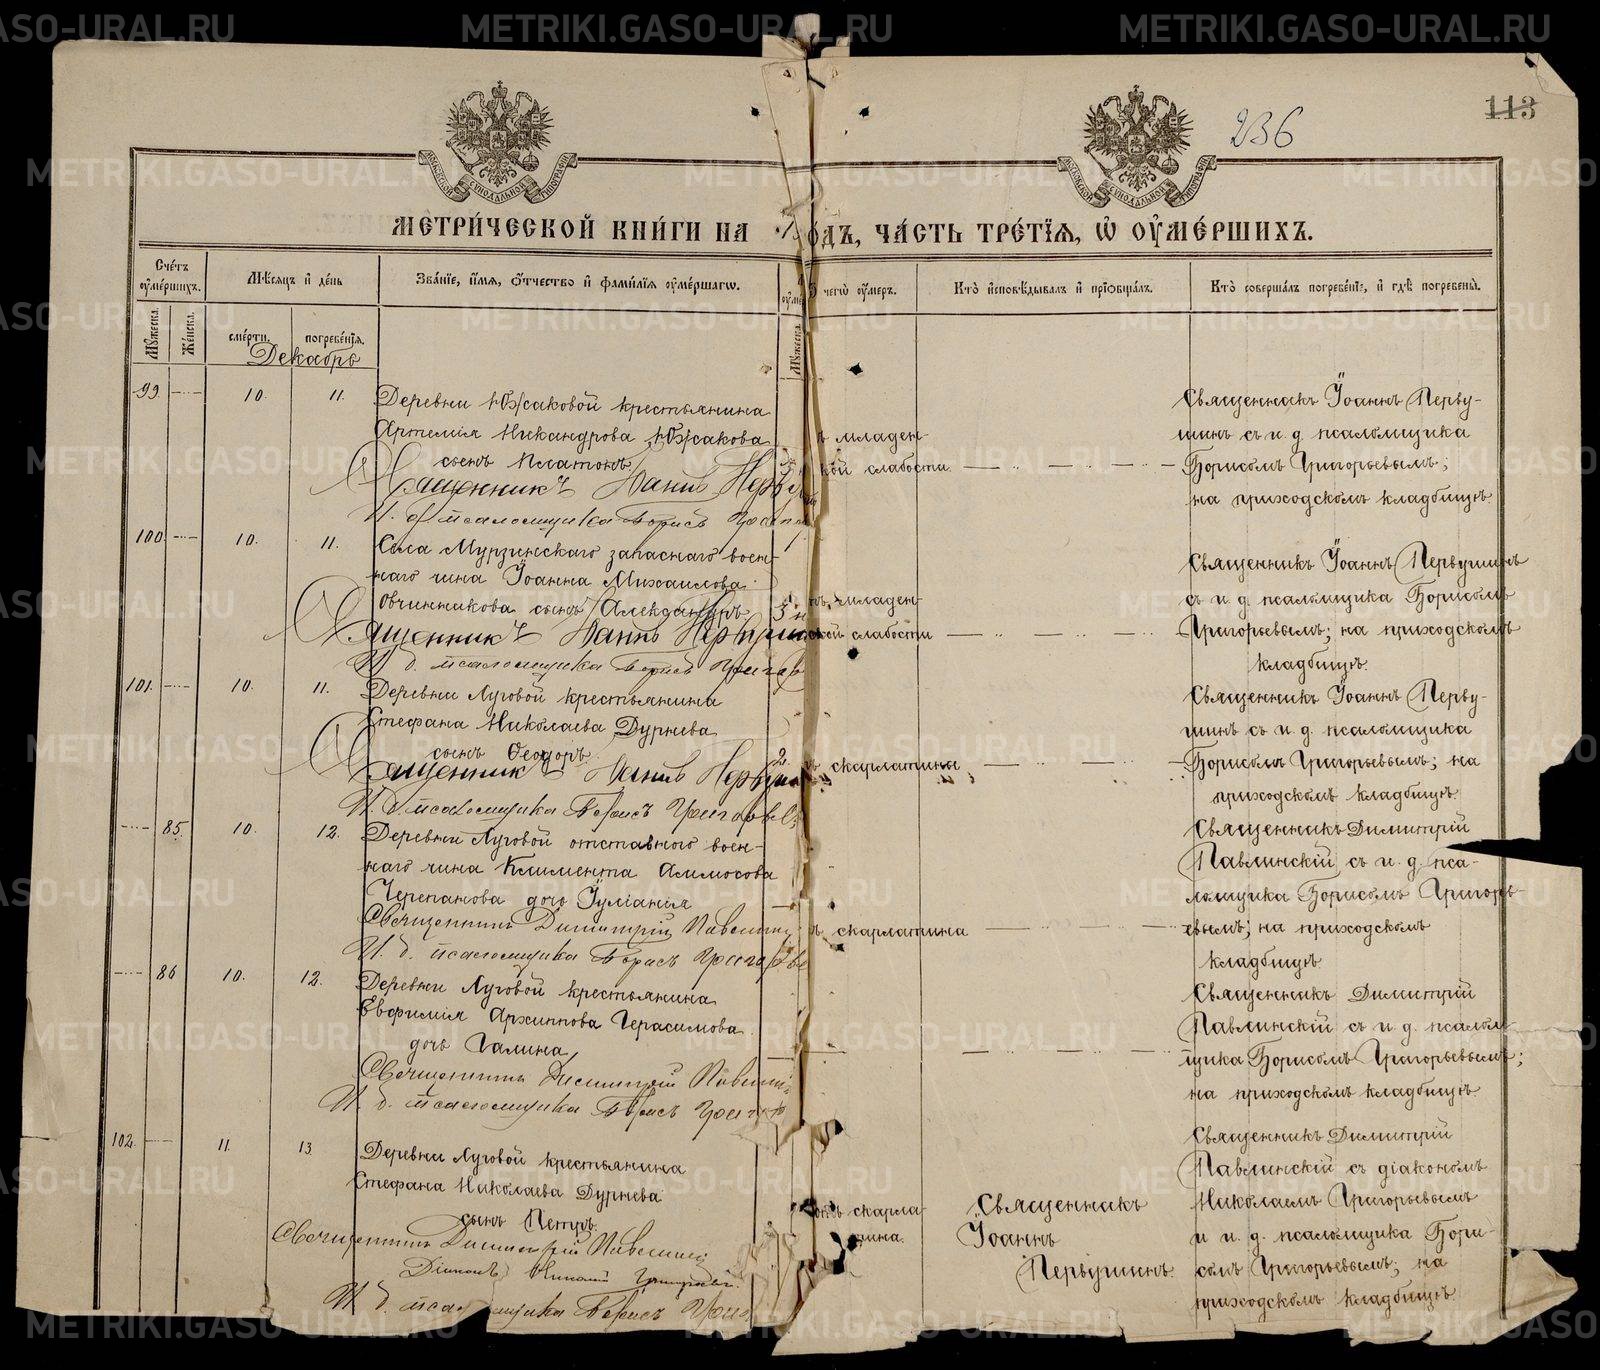 METRIKI.GASO-URAL.RU
236
113
МОСКОВСКОЙ СУНОДАЛЬНОЙ ТИПОГРАФІИ
МОСКОВСКОЙ СУНОДАЛЬНОЙ ТИПОГРАФІИ
МЕТРИ́ЧЕСКОЙ КНИ́ГИ НА
О́ДЪ, ЧА́СТЬ ТРЕ́ТІѦ, Ѡ ОУМЕ́РШИХЪ.
Сче́тъ оумершихъ.
Мѣсяцъ и день
Зва́ніе, и́мя, о́тчество и фами́лія оуме́ршагѡ.
чегѡ оумеръ.
Кто̀ исповѣ́дывалъ и пріобща́лъ.
Кто̀ соверша́лъ погребе́ніе, и гдѣ погребены̀.
Мужеска.
Женска.
сме́рти.
погребе́нія.
Мужеска.
Декабрь
99.
10.
11.
Деревни Южаковой крестьянина
Артемія Никандрова Южакова
сынъ Платонъ
Священникъ Іоаннъ Перву
И. д. псаломщика Борисъ Григ
младен-
кой слабости
Священникъ Іоаннъ Перву-
шинъ съ и. д. псаломщика
Борисомъ Григорьевымъ;
на приходскомъ кладбищѣ
100.
10.
11.
Села Мурзинскаго запаснаго воен-
наго чина Іоанна Михаилова
Овчинникова сынъ Александръ
Священникъ Іоаннъ Первуши
И. д. псаломщика Борисъ Григор
младен-
ской слабости
Священникъ Іоаннъ Первушинъ
съ и. д. псаломщика Борисомъ
Григорьевымъ; на приходскомъ
кладбищѣ.
101.
10.
11.
Деревни Луговой крестьянина
Стефана Николаева Дурнева
сынъ Ѳеодоръ
2
Священникъ Іоаннъ Первуш
И. д. псаломщика Борисъ Григорьевъ
скарлатины
Священникъ Іоаннъ Перву-
шинъ съ и. д. псаломщика
Борисомъ Григорьевымъ; на
приходскомъ кладбищѣ.
85.
10.
12.
Деревни Луговой отставного воен-
наго чина Климента Алимосова
Черепанова дочь Іуліанія
Священникъ Димитрій Павлинскій
И. д. псаломщика Борисъ Григорьев
скарлатина
Священникъ Димитрій
Павлинскій съ и. д. пса-
ломщика Борисомъ Григорь-
евымъ; на приходскомъ
кладбищѣ
86
10.
12.
Деревни Луговой крестьянина
Евфимія Архиппова Герасимова
дочь Галина
Священникъ Димитрій Павлин
И. д. псаломщика Борисъ Григо
Священникъ Димитрій
Павлинскій съ и. д. псалом-
щика Борисомъ Григорьевымъ;
на приходскомъ кладбищѣ
102.
11.
13
Деревни Луговой крестьянина
Стефана Николаева Дурнева
сынъ Петръ.
Священникъ Димитрій Павлинскій
Діаконъ Николай Григорьевъ.
И. д. псаломщика Борисъ Григ
скарла-
тина.
Священникъ
Іоаннъ
Первушинъ
Священникъ Димитрій
Павлинскій съ діакономъ
Николаемъ Григорьевымъ
и и. д. псаломщика Бори-
сомъ Григорьевымъ; на
приходскомъ кладбищѣ